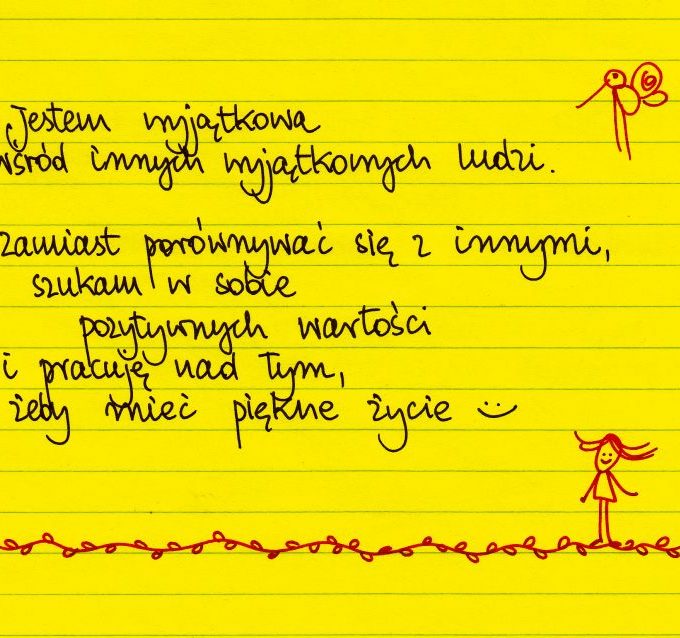 Jestem wyjątkowa
wśród innych wyjątkowych ludzi.
Zamiast porównywać się z innymi,
szukam w sobie
pozytywnych wartości
i pracuję nad tym,
żeby mieć piękne życie :)